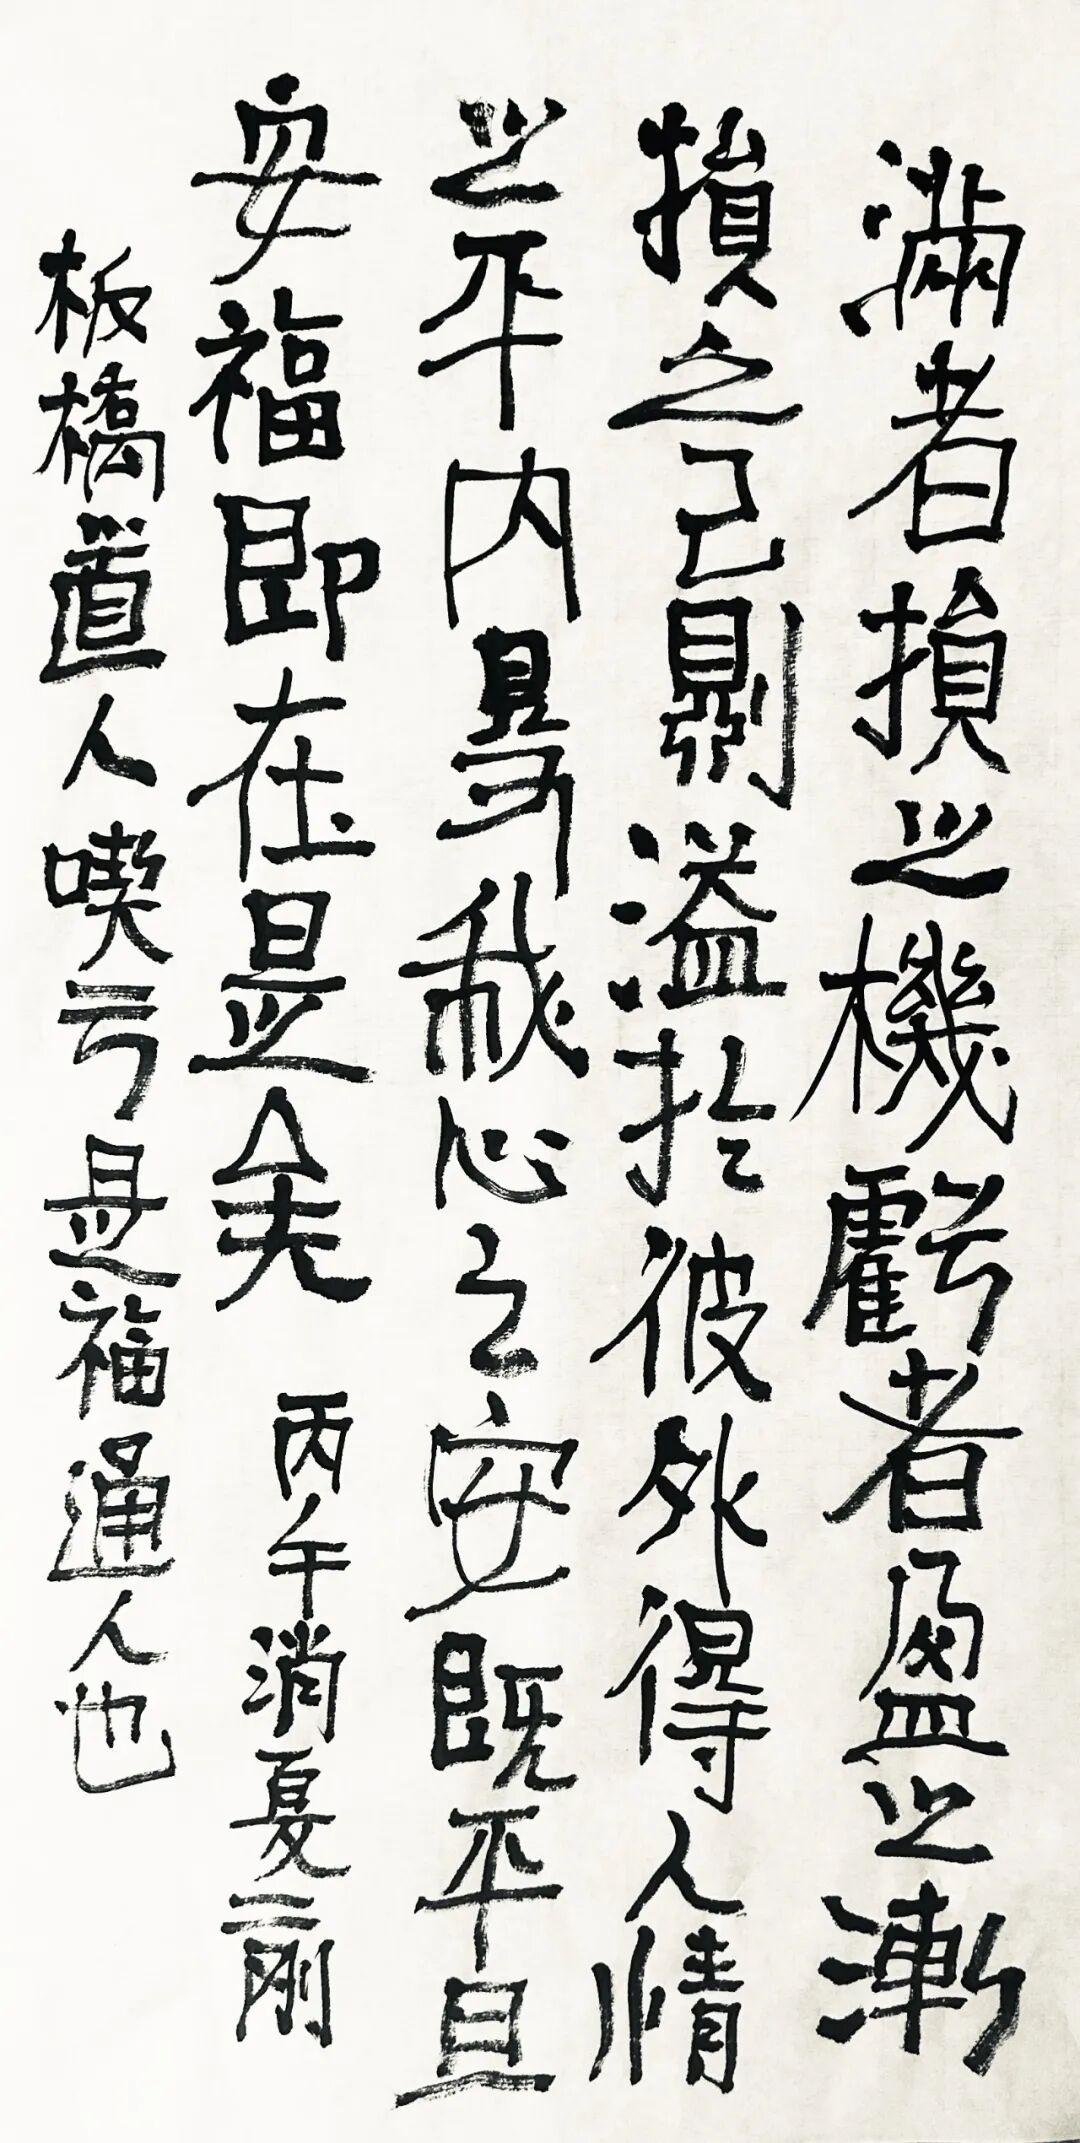 滿者損之機虧者盈之漸
損之己則溢於彼外得人情
之平内得我心之安既平且
安福即在是矣 丙午消夏二刚
板橋道人喫亏是福通人也